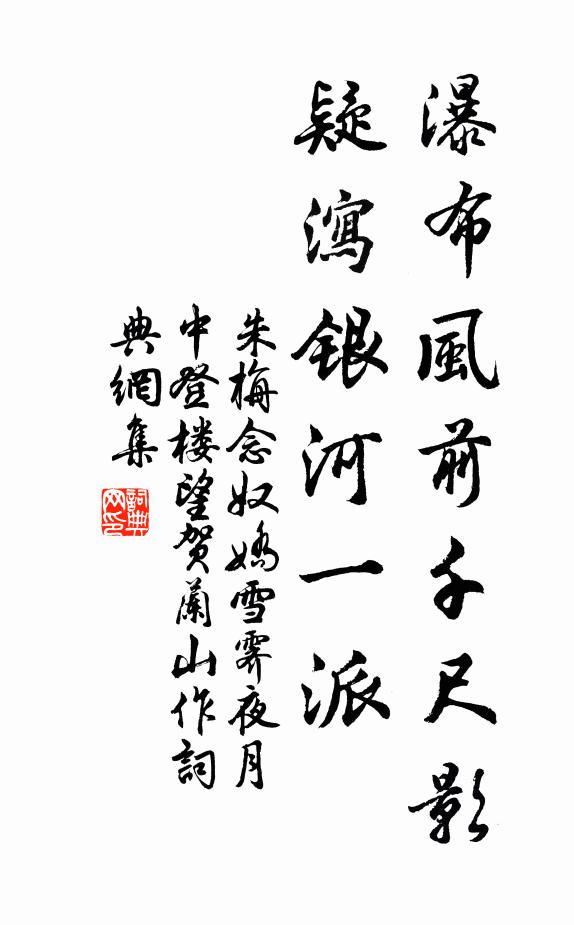 瀑布風前千尺影
疑瀉銀河一派
朱梅念奴嬌雪霽夜月
中登楼望贺蘭山作詞
典網集
詞典网印